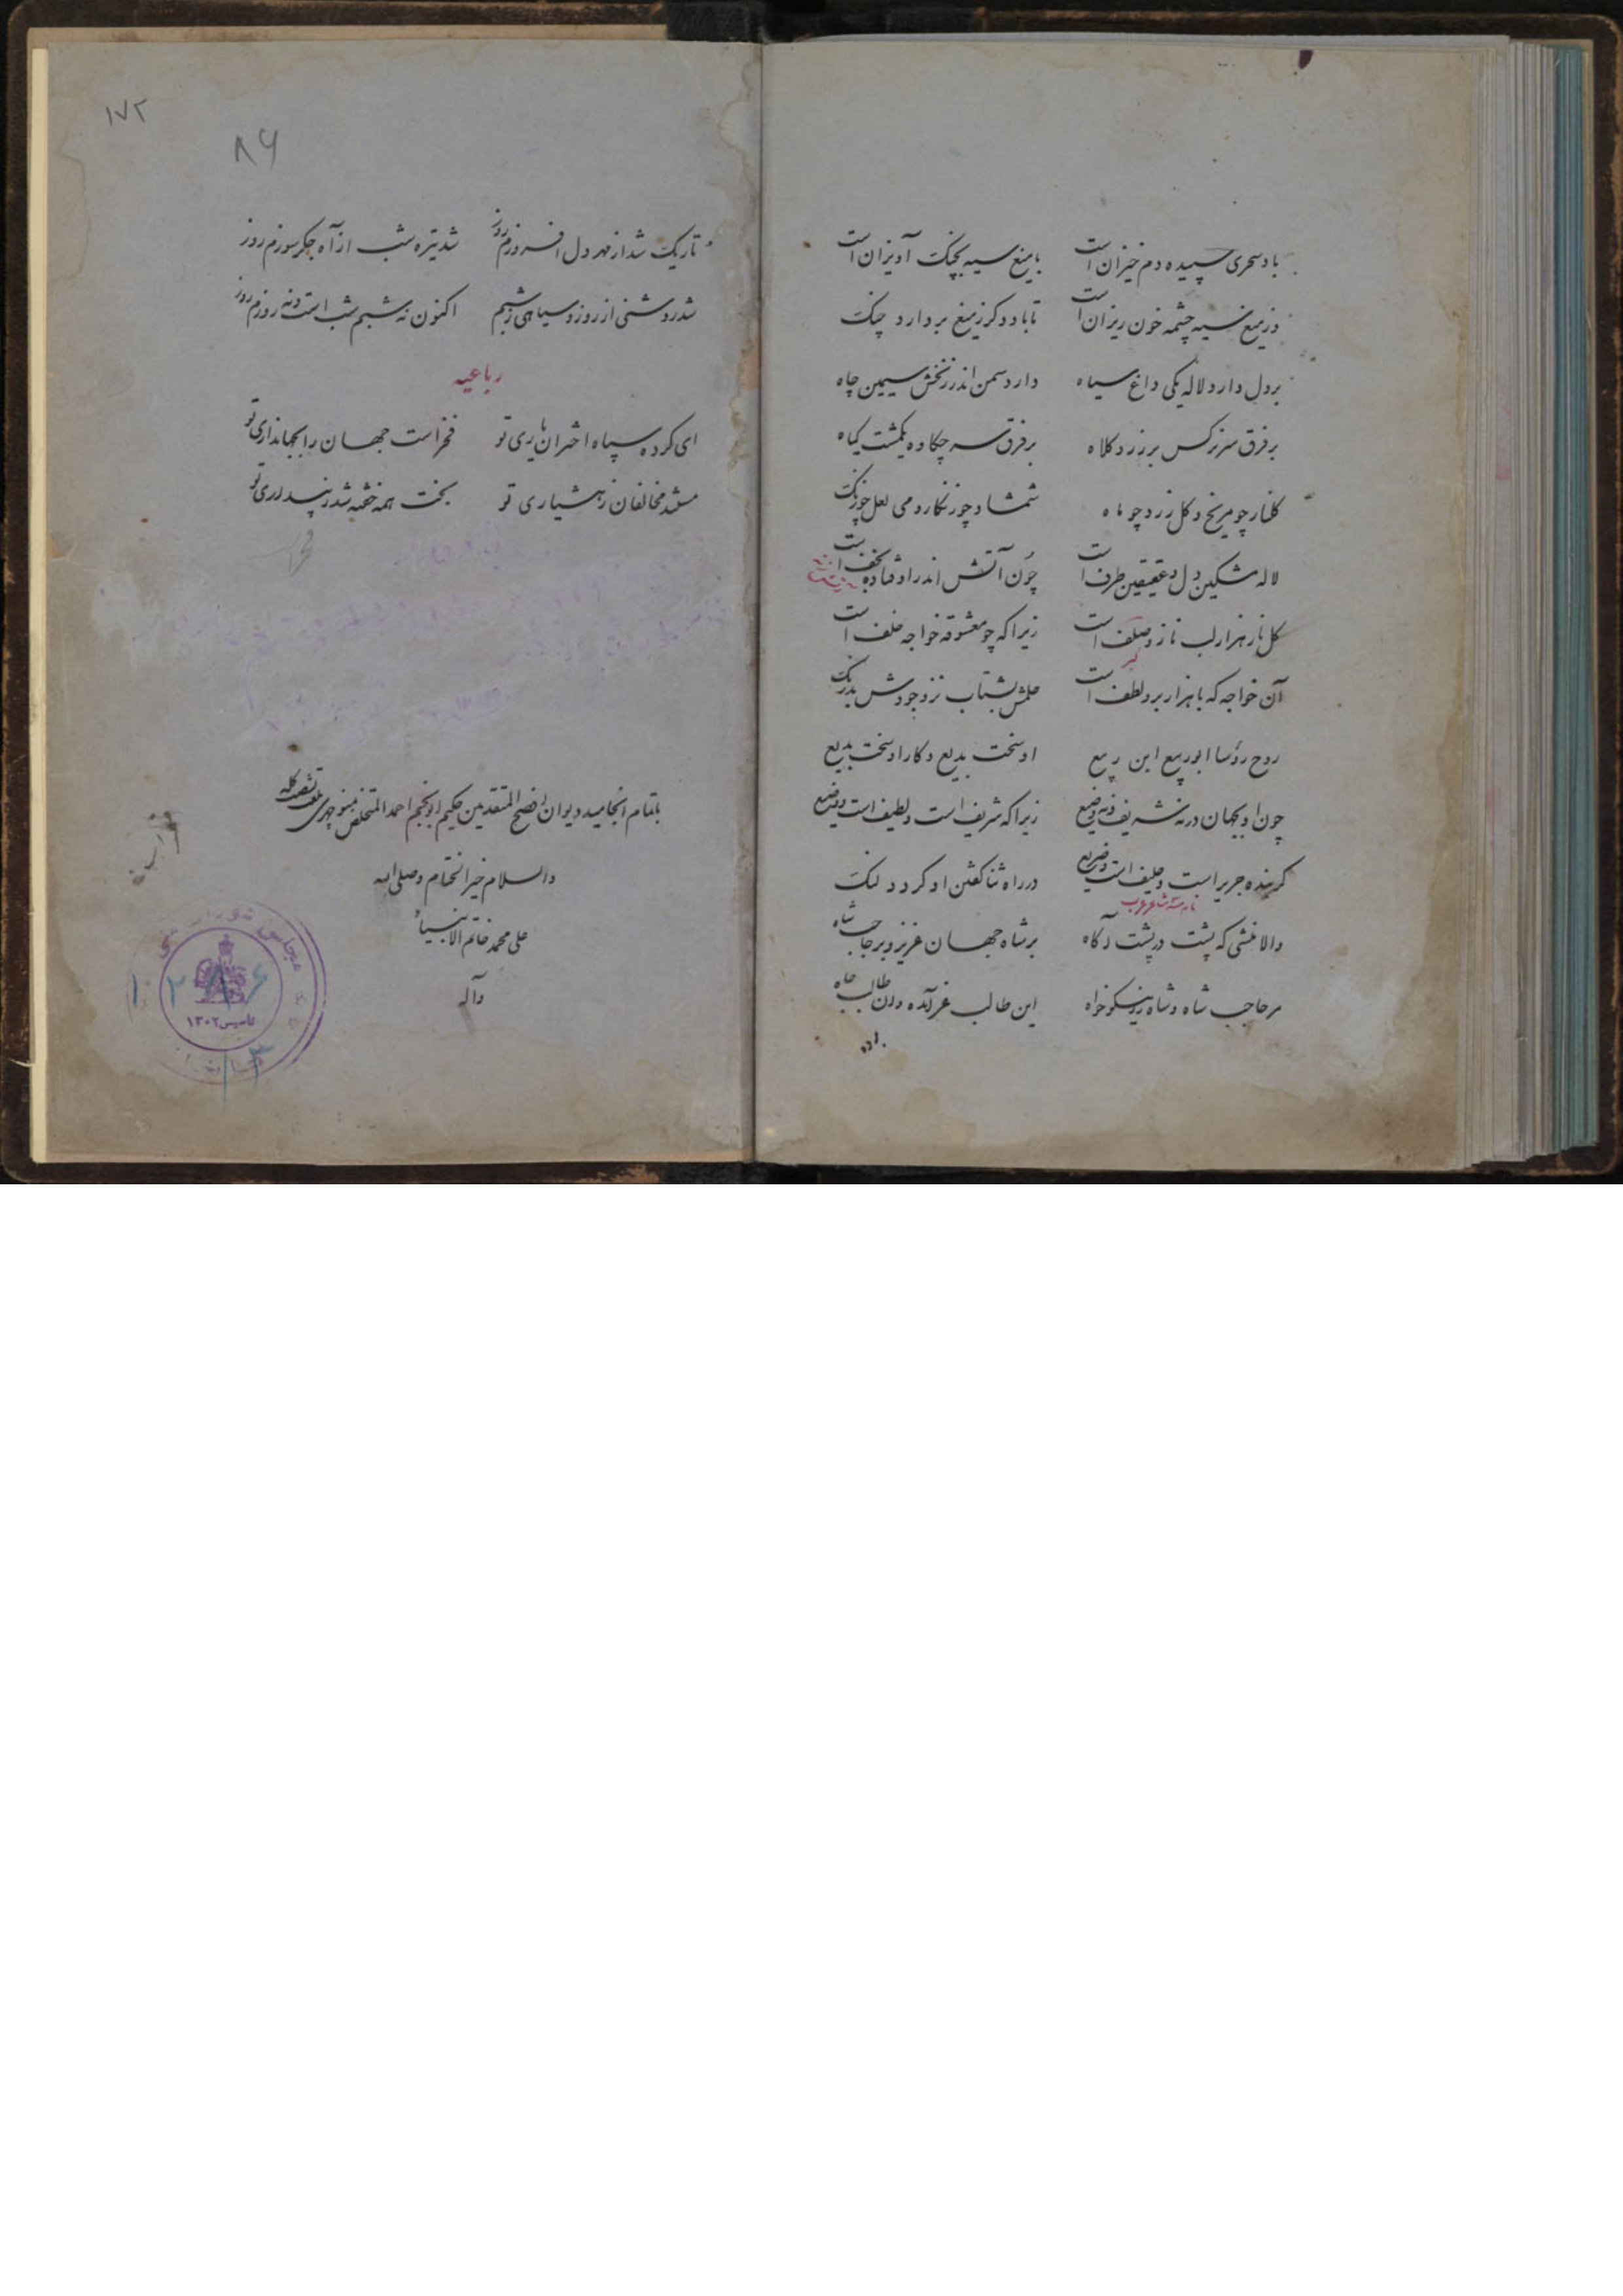 باد سحری سپیده دم خیزان است با میغ سیه بجنک آویزان است
وز میغ سیه چشمه خون ریزان است تا باد دکر ز میغ بردارد چنک
بر دل دارد لاله یکی داغ سیاه دارد سمن اندر زنخش سیمین چاه
بر فرق سر نرکس بر زرد کلاه بر فرق سر چکاوه یکمشت کیاه
کلنار چو مریخ و کل زرد چو ماه شمشاد چو زنکار و می لعل چو زنک
لاله مشکین دل و عقیقین طرف است چون آتش اندر او فتاده خف است
کل نار هزار لب ناز و صلف است زیرا که چو معشوقه خواجه خلف است
کبر
آن خواجه که با هزار بر و لطف است حلمش بشتاب نز و جودش بدرنک
روح رؤسا ابو ربیع ابن ربیع او سخت بدیع و کار او سخت بدیع
چون او بجهان در نه شریف و نه وضیع زیرا که شریف است و لطیف است و وضیع
کرینده جریر است و حلیف است و ضریع در راه ثنا کفتن او کردد لنک
نام سه شاعر عرب
والا منشی که پشت در پشت آکاه بر شاه جهان عزیز و بر حاجب شاه
مر حاجب شاه و شاه را نیکو خواه این طالب غر آمده و آن طالب جاه
۱۷۲
۸۶
تاریک شد از مهر دل افروزم روز شد تیره شب از آه جکر سوزم روز
شد روشنی از روز و سیاهی ز شبم اکنون نه شبم شب است و نه روزم روز
رباعیه
ای کرده سپاه اختران یاری تو فخر است جهان را بجهانداری تو
مستند مخالفان ز هشیاری تو بخت همه خفته شد ز بیداری تو
باتمام انجامید دیوان افصح المتقدمین حکیم ابو النجم احمد المتخلص بمنوچهری ملقب بشصت کله
والسلام خیر الختام وصلی الله
علی محمد خاتم الانبیاء
وآله
مجلس شورای ملی
تاسیس ۱۳۰۲